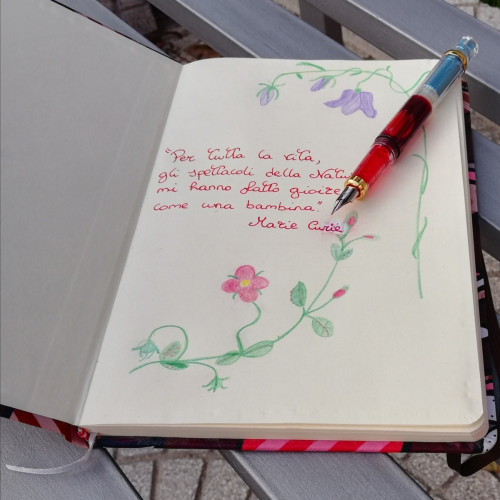 "Per tutta la vita,
gli spettacoli della Natu
mi hanno fatto gioire
come una bambina".
Marie Curie